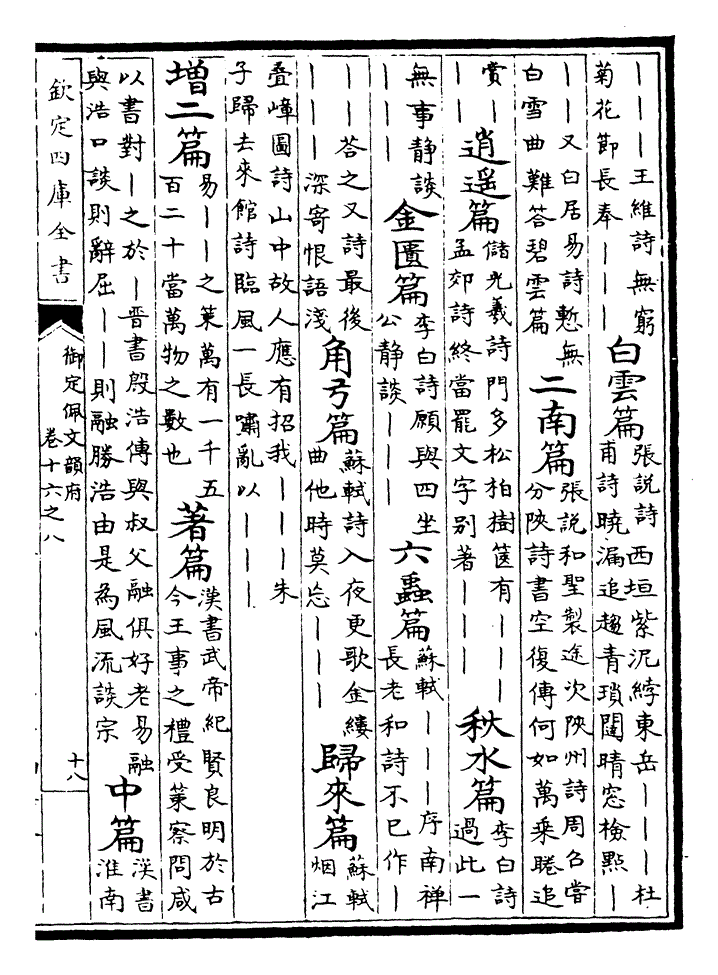 ｜｜｜王維詩無窮菊花節長奉｜｜｜ 白雲篇 張説詩西垣紫泥綍東岳｜｜｜杜甫詩曉漏追趨青瑣闥晴窓檢點｜
｜｜又白居易詩慙無白雪曲難答碧雲篇 二南篇 張説和聖製途次陜州詩周召嘗分陜詩書空復傳何如萬乗睠追
賞｜｜｜ 逍遥篇 儲光羲詩門多松柏樹篋有｜｜｜孟郊詩終當罷文字别著｜｜｜ 秋水篇 李白詩過此一
無事静談｜｜｜ 金匱篇 李白詩願與四坐公静談｜｜｜ 六蟲篇 蘇軾｜｜｜序南禅長老和詩不已作｜
｜｜荅之又詩最後｜｜｜深寄恨語淺 角弓篇 蘇軾詩入夜更歌金縷曲他時莫忘｜｜｜ 歸來篇 蘇軾烟江
叠嶂圖詩山中故人應有招我｜｜｜朱子歸去來館詩臨風一長嘯亂以｜｜｜
增二篇 易｜｜之䇿萬有一千五百二十當萬物之數也 著篇 漢書武帝紀賢良明於古今王事之禮受䇿察問咸
以書對｜之於｜晋書殷浩傳與叔父融俱好老易融與浩口談則辭屈｜｜則融勝浩由是為風流談宗 中篇 漢書淮南
欽定四庫全書
御定佩文韻府
卷十六之八
十八